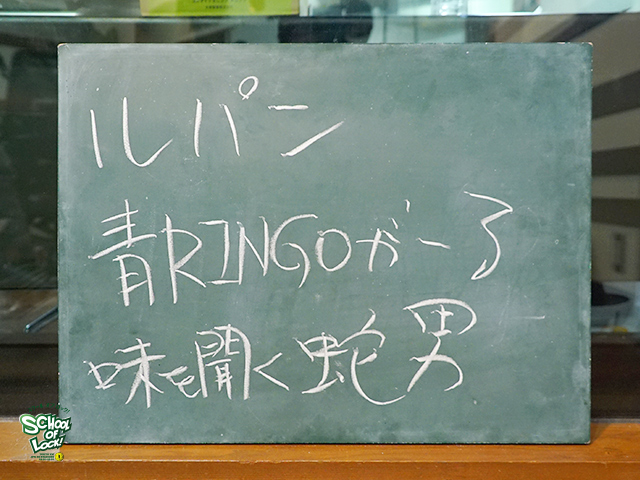 ルパン
青RINGOがーる
味を聞く蛇男
SCHOOL
OF
LOCK!